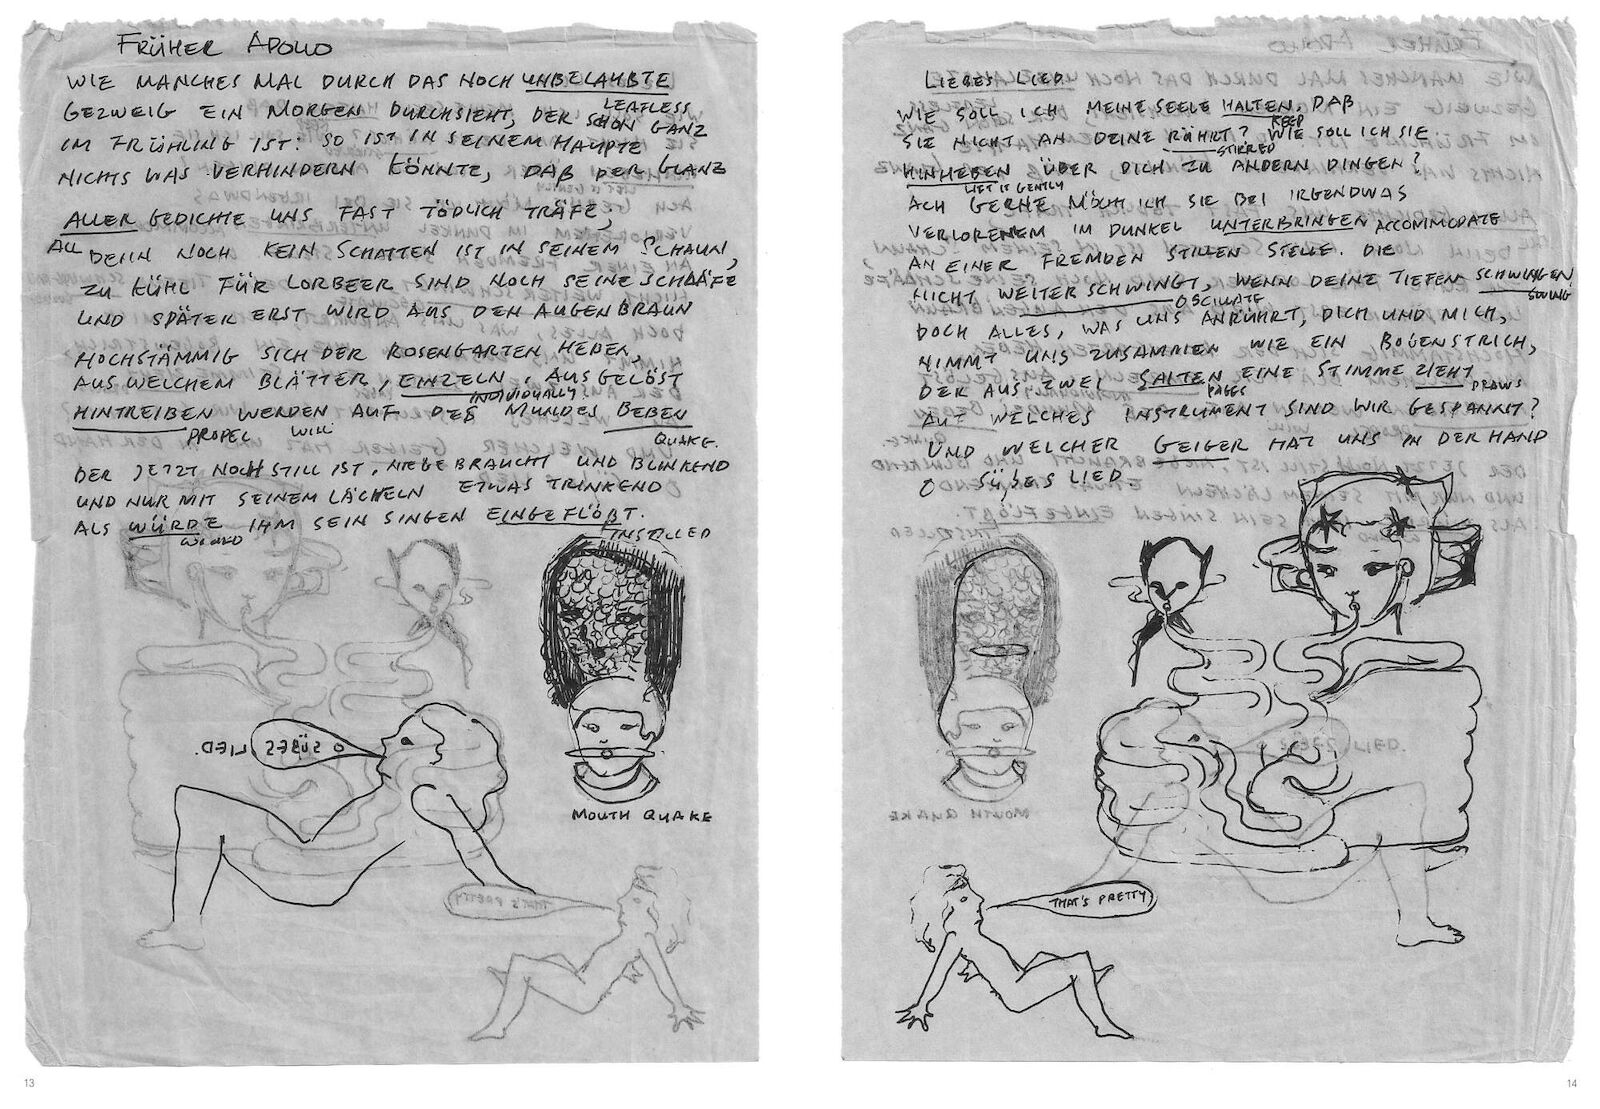 FRÜHER APOLLO
WIE MANCHES MAL DURCH DAS NOCH UNBELAUBTE
LEAFLESS
GEZWEIG EIN MORGEN DURCHSIEHT, DER SCHON GANZ
IM FRÜHLING IST: SO IST IN SEINEM HAUPTE
NICHTS WAS VERHINDERN KÖNNTE, DAß DER GLANZ
ALLER GEDICHTE UNS FAST TÖDLICH TRÄFE;
ALL
DENN NOCH KEIN SCHATTEN IST IN SEINEM SCHAUN,
ZU KÜHL FÜR LORBEER SIND NOCH SEINE SCHLÄFE
UND SPÄTER ERST WIRD AUS DEN AUGENBRAUN
HOCHSTÄMMIG SICH DER ROSENGARTEN HEBEN,
AUS WELCHEM BLÄTTER, EINZELN, AUSGELÖST
INDIVIDUALLY
HINTREIBEN WERDEN AUF DES MUNDES BEBEN
PROPEL WILL QUAKE.
DER JETZT NOCH STILL IST, NIEGEBRAUCHT UND BLINKEND
UND NUR MIT SEINEM LÄCHELN ETWAS TRINKEND
ALS WÜRDE IHM SEIN SINGEN EINGEFLÖßT.
WOULD INSTILLED
O SÜßES LIED.
MOUTH QUAKE
THAT'S PRETTY
13
LIEBES LIED
WIE SOLL ICH MEINE SEELE HALTEN, DAß
KEEP
SIE NICHT AN DEINE RÜHRT? WIE SOLL ICH SIE
STIRRED
HINHEBEN ÜBER DICH ZU ANDERN DINGEN?
LIFT IT GENTLY
ACH GERNE MÖCHT ICH SIE BEI IRGENDWAS
VERLORENEM IM DUNKEL UNTERBRINGEN ACCOMMODATE
AN EINER FREMDEN STILLEN STELLE. DIE
NICHT WEITER SCHWINGT, WENN DEINE TIEFEN SCHWINGEN,
OSCILLATE SWING
DOCH ALLES, WAS UNS ANRÜHRT, DICH UND MICH,
NIMMT UNS ZUSAMMEN WIE EIN BOGENSTRICH,
DER AUS ZWEI SAITEN EINE STIMME ZIEHT
PAGES DRAWS
AUF WELCHES INSTRUMENT SIND WIR GESPANNT?
UND WELCHER GEIGER HAT UNS IN DER HAND
O SÜßES LIED.
THAT'S PRETTY
14